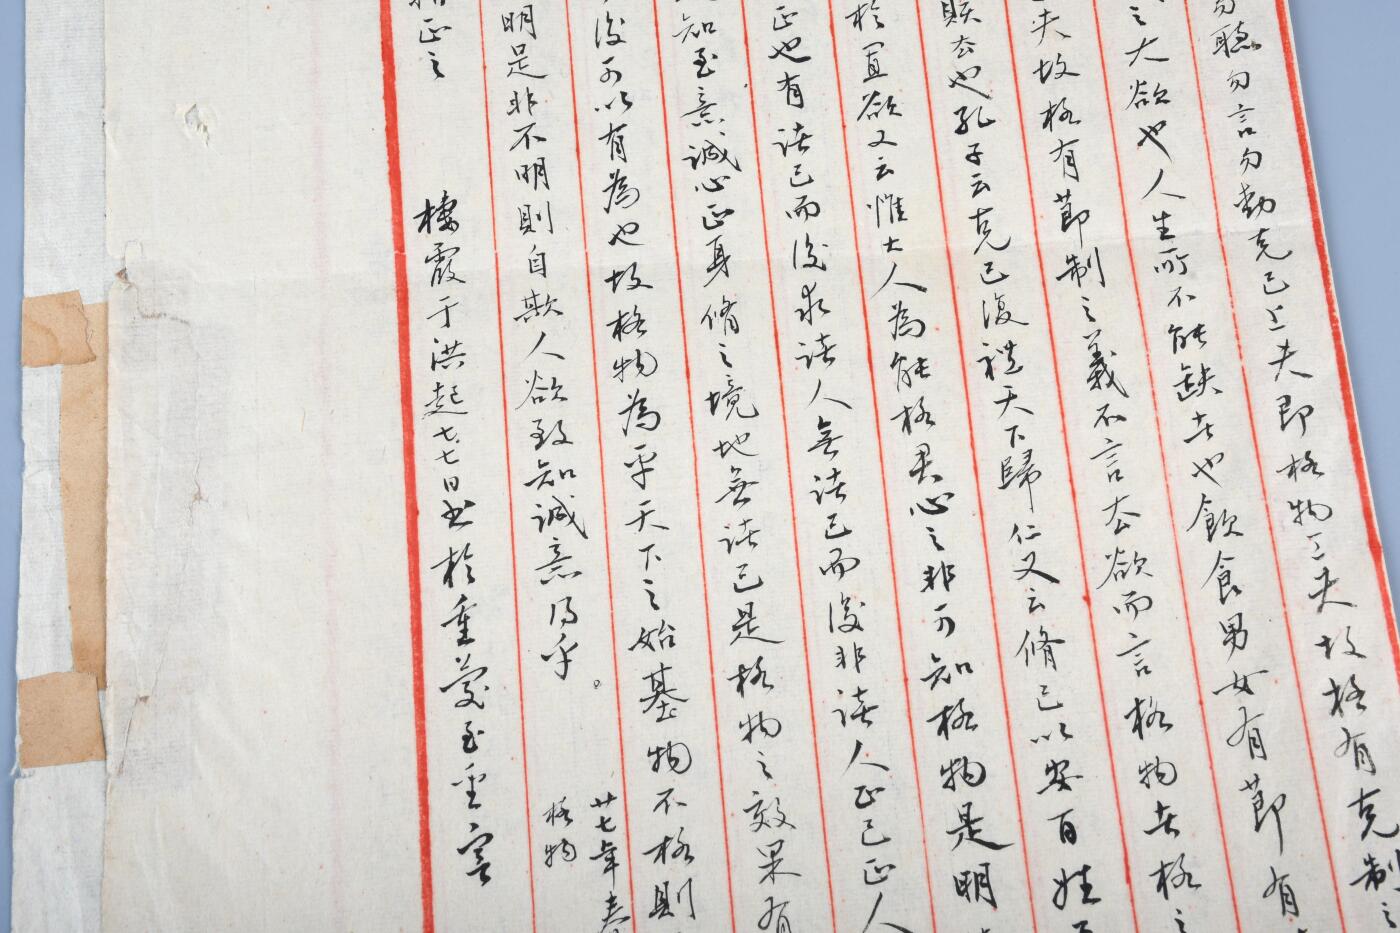 勿聽勿言勿動克己工夫即格物工夫故格有克制之
之大欲也人生所不能缺者也飲食男女有節有
夫故格有節制之義不言去欲而言格物者格之
賊去也孔子云克己復禮天下歸仁又云脩己以安百姓
於寡欲又云惟大人為能格君心之非可知格物是明
正也有諸己而後求諸人無諸己而後非諸人正己正人
知至意誠心正身脩之境地無諸己是格物之效果有
後可以有為也故格物為平天下之始基物不格則
明是非不明則自欺人欲致知誠意得乎。
廿七年春
格物
正之
棲霞于洪起七七日書於重慶至聖宮